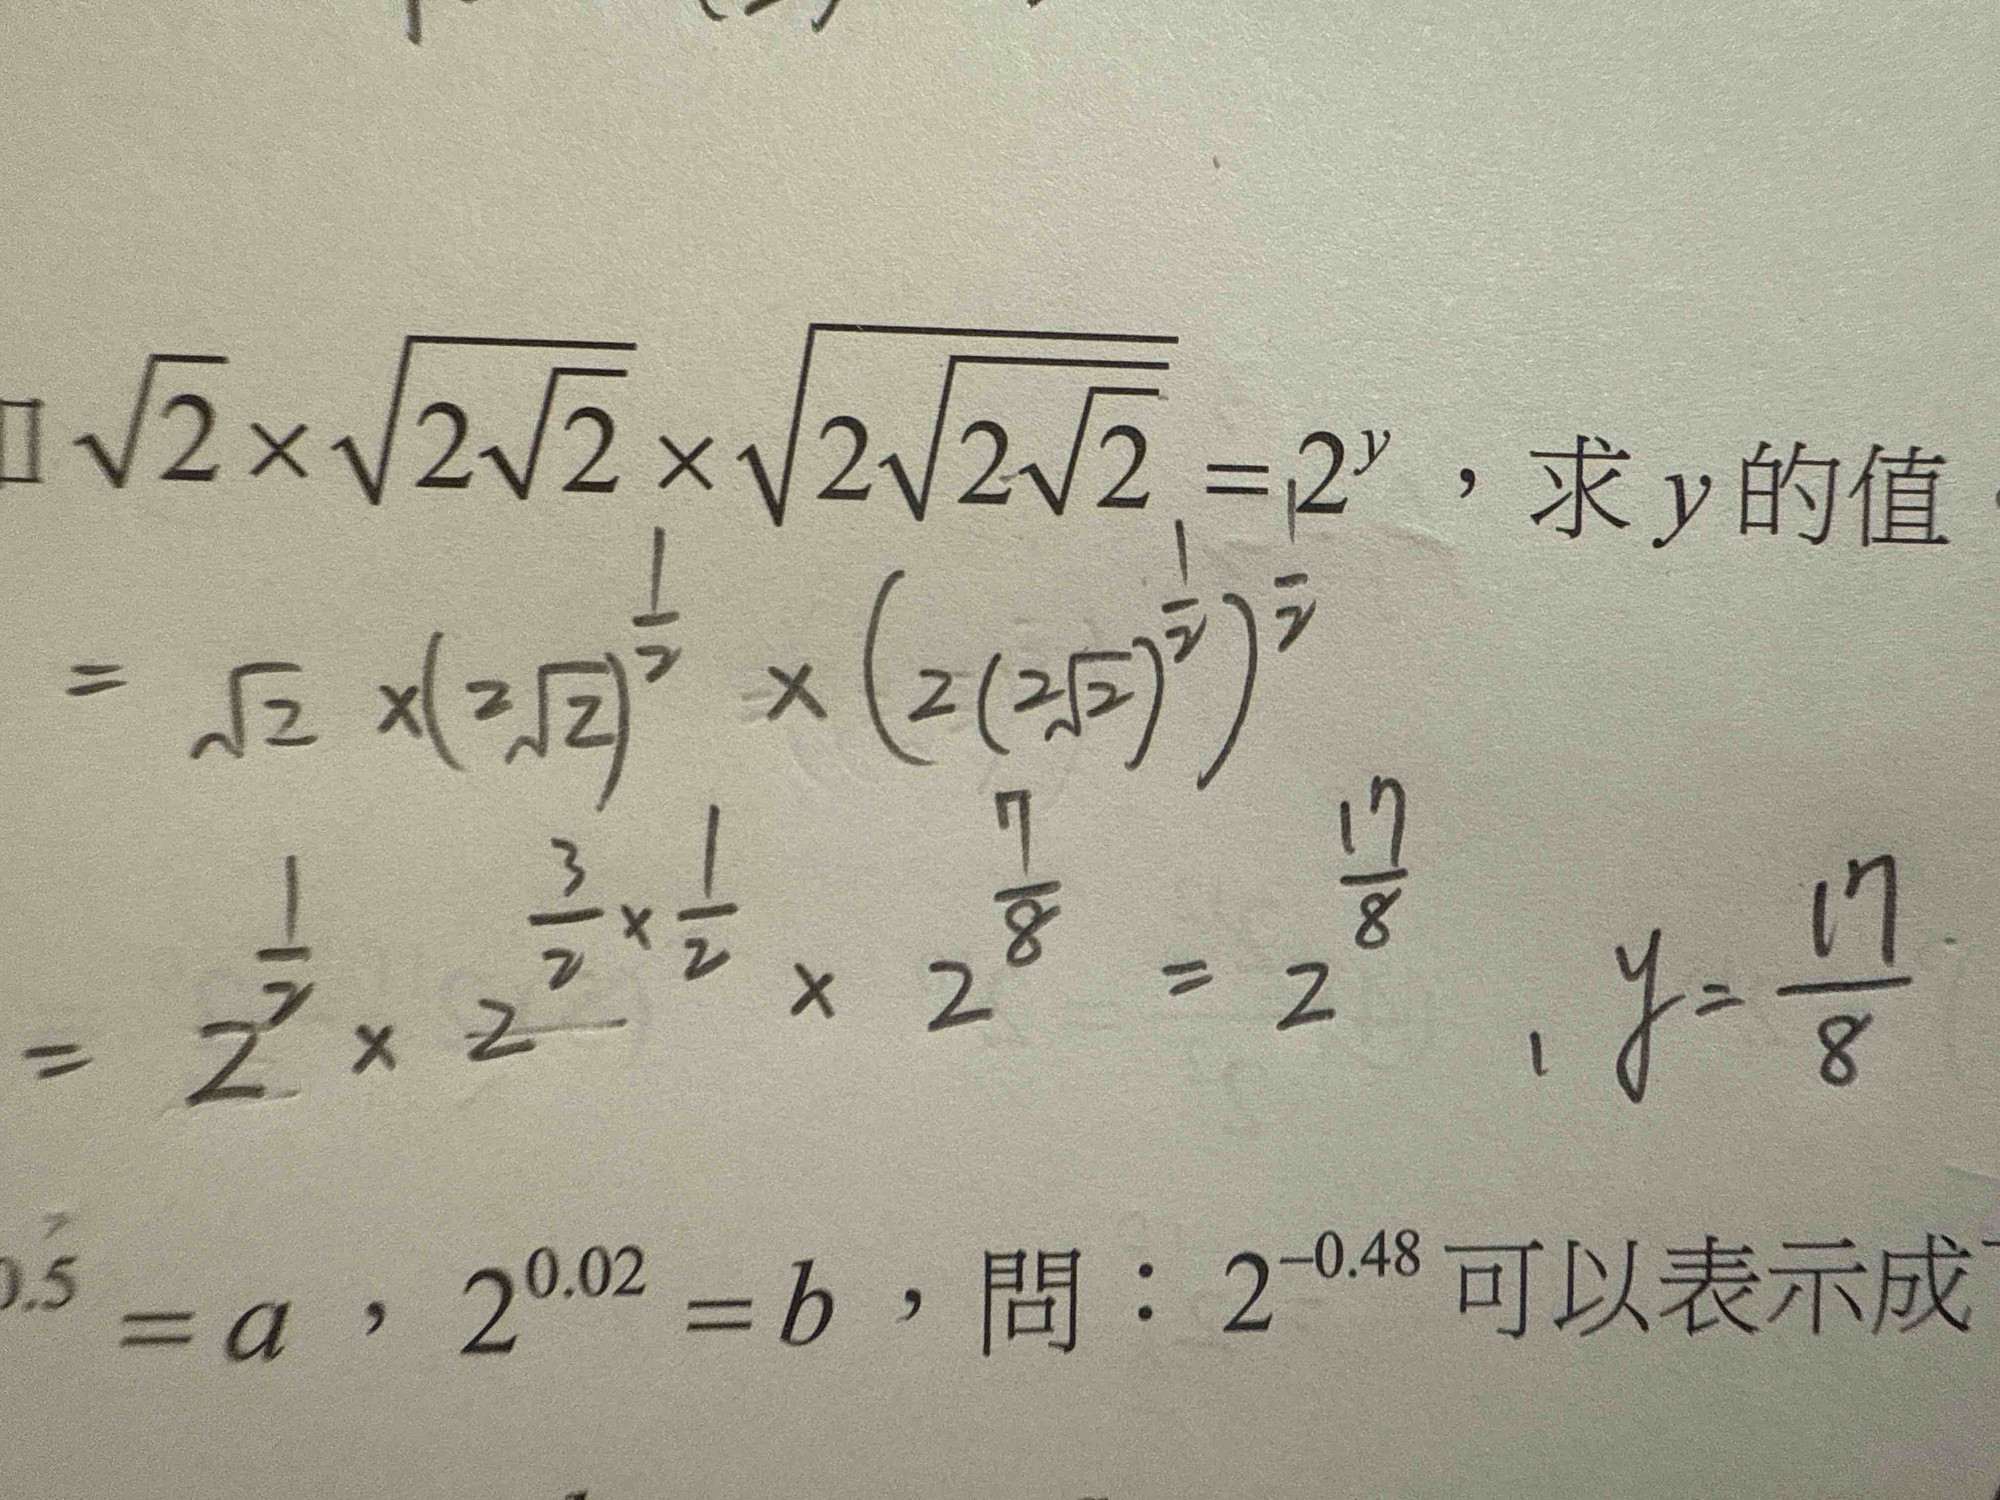 √2 × √(2√2) × √(2√(2√2)) = 2^y，求 y 的值
= √2 × (2√2)^(1/2) × (2(2√2)^(1/2))^(1/2)
= 2^(1/2) × 2^(3/2 × 1/2) × 2^(7/8) = 2^(17/8) , y = 17/8
0.5 = a，2^0.02 = b，問：2^−0.48 可以表示成